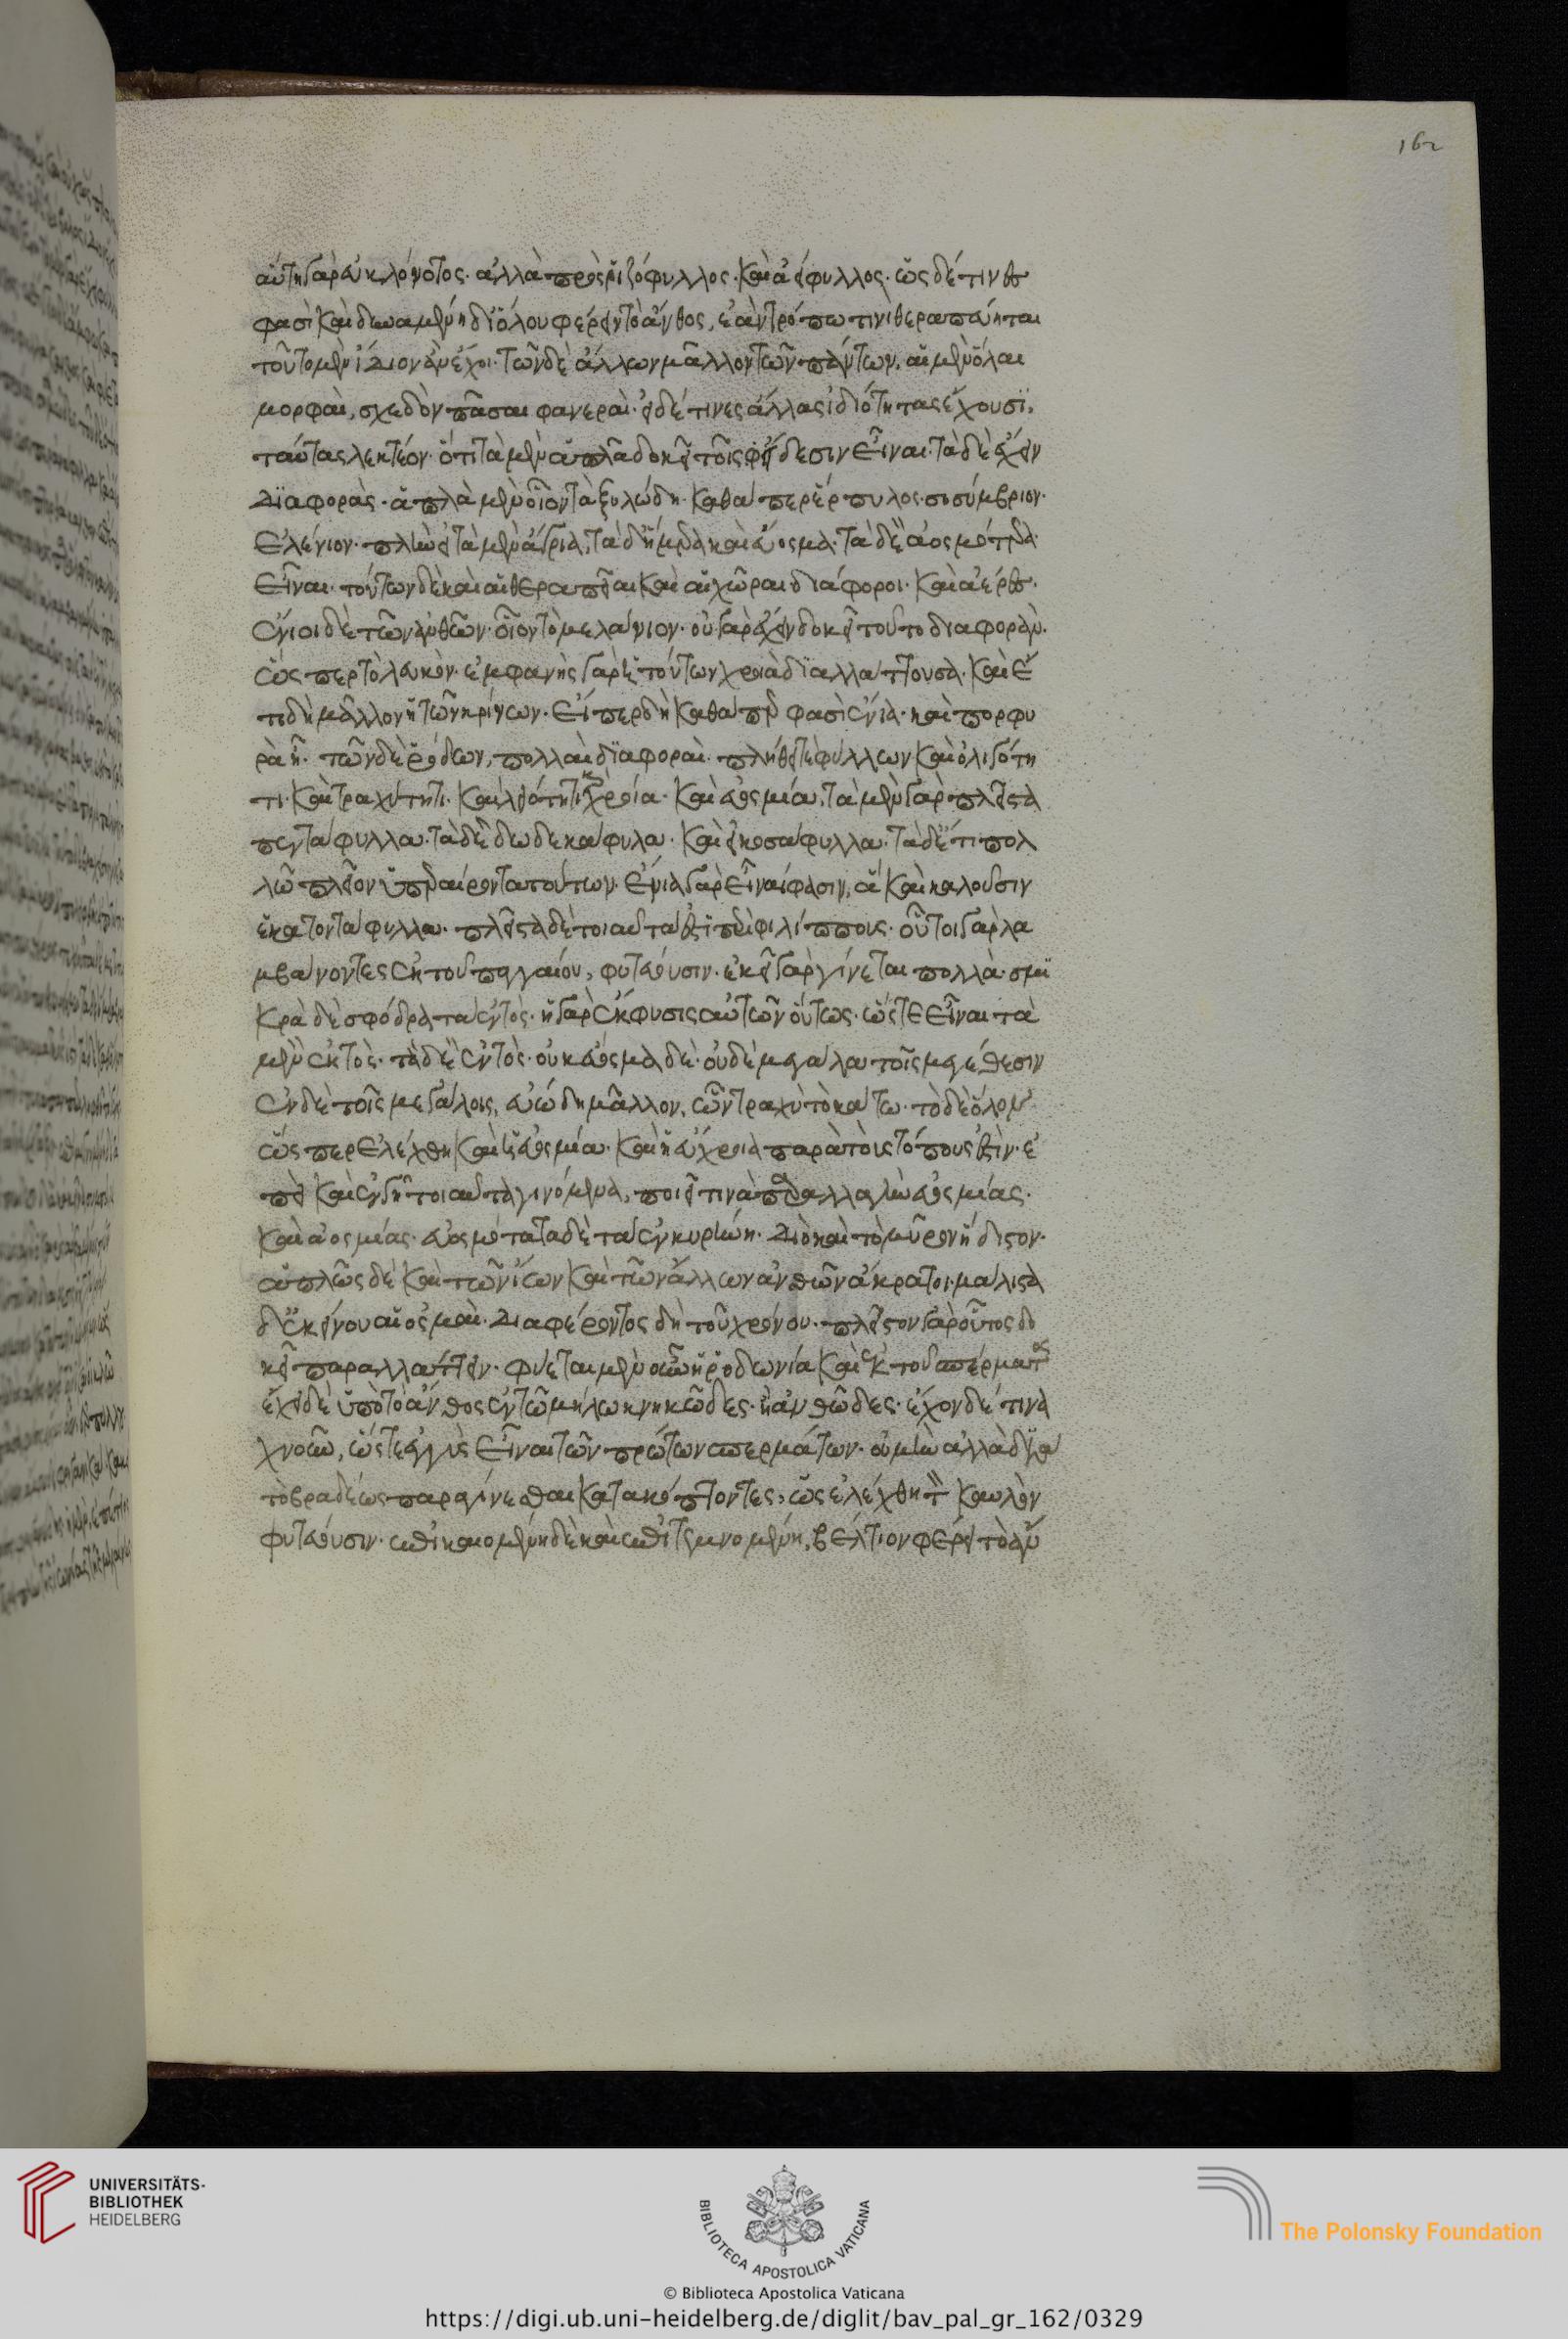 162
αὕτη γὰρ εὐκλόνητος· ἀλλὰ πρὸς ῥιζόφυλλος· καὶ ἀείφυλλος· ὡς δέ τινες
φασὶ καὶ δυναμένη δι' ὅλου φέρειν τὸ ἄνθος, ἐὰν τρόπω τινὶ θεραπεύηται
τοῦτο μὲν ἴδιον ἂν ἔχοι· τῶν δὲ ἄλλων μᾶλλον τῶν πάντων, αἱ μὲν ὅλαι
μορφαὶ, σχεδὸν πᾶσαι φανεραὶ· εἰ δέ τινες ἄλλας ἰδιότητας ἔχουσϊ,
ταύτας λεκτέον· ὅτι τὰ μὲν ἁπλᾶ δοκεῖ τοῖς εἴδεσιν εἶναι· τὰ δὲ ἔχειν
διαφορὰς· ἁπλὰ μὲν οἷον τὰ ξυλώδη· καθάπερ ἕρπυλος· σισύμβριον·
ἑλένιον· πλὴν εἰ τὰ μὲν ἄγρια, τὰ δ' ἥμερα καὶ εὔοσμα· τὰ δὲ ἀοσμότερα
εἶναι· τούτων δὲ καὶ αἱ θεραπεῖαι καὶ αἱ χῶραι διάφοροι· καὶ ἀέρες·
ἔνιοι δὲ τῶν ἀνθῶν· οἷον τὸ μελάνιον· οὐ γὰρ ἔχειν δοκεῖ τοῦτο διαφορὰν·
ὥσπερ τὸ λευκὸν· ἐμφανὴς γὰρ ἡ τούτων χροιὰ διαλλάττουσα· καὶ ἔ
τι δὴ μᾶλλον ἡ τῶν κρίνων· εἴπερ δὴ καθάπερ φασὶ ἔνια· καὶ πορφυ
ρὰ ἦ· τῶν δὲ ῥόδων, πολλαὶ διαφοραὶ· πλήθει τε φύλλων καὶ ὀλιγότη
τι· καὶ τραχύτητι· καὶ λειότητι καὶ χροία· καὶ εὐοσμία, τὰ μὲν γὰρ πλεῖστα
πεντάφυλλα· τὰ δὲ δωδεκάφυλα· καὶ εἰκοσάφυλλα· τὰ δ' ἔτι πολ
λῶ πλεῖον ὑπεραίροντα τούτων· ἔνια γὰρ εἶναί φασιν, ἃ καὶ καλοῦσιν
ἑκατοντάφυλλα· πλεῖστα δὲ τοιαῦτα ἐστὶ περὶ φιλίππους· οὗτοι γὰρ λα
μβάνοντες ἐκ τοῦ παγγαίου, φυτεύουσιν· ἐκεῖ γὰρ γίνεται πολλὰ· σμϊ
κρὰ δὲ σφόδρα τὰ ἐντὸς· ἡ γὰρ ἔκφυσις αὐτῶν οὕτως· ὥστε εἶναι τὰ
μὲν ἐκτὸς· τὰ δὲ ἐντὸς· οὐκ εὔοσμα δὲ· οὐδὲ μεγάλα τοῖς μεγέθεσιν
ἐν δὲ τοῖς μεγάλοις, εὐώδη μᾶλλον, ὧν τραχὺ τὸ κάτω· τὸ δὲ ὅλον
ὥσπερ ἐλέχθη καὶ ἡ εὐοσμία· καὶ ἡ εὔχροια παρὰ τοὺς τόπους ἐστὶν· ἐ
πεὶ καὶ ἐν γῆ τοιαῦτα γινόμενα, ποιεῖ τινὰ παραλλαγὴν εὐοσμίας·
καὶ ἀοσμίας· εὐοσμότατα δὲ τὰ ἐν κυρήνη· διὸ καὶ τὸ μῦρον ἥδιστον·
ἁπλῶς δὲ καὶ τῶν ἴων καὶ τῶν ἄλλων ἀνθῶν ἄκρατοι μάλιστα
δ' ἐκείνου αἱ ὀσμαὶ· διαφέροντος δὴ τοῦ χρόνου· πλεῖστον γὰρ οὗτος δο
κεῖ παραλλάττειν· φύεται μὲν οὖν ἡ ῥοδωνία καὶ ἐκ τοῦ σπέρματος
ἔχει δὲ ὑπὸ τὸ ἄνθος ἐν τῶ μήλω κνηκῶδες· ἢ ἀνθῶδες· ἔχον δέ τινα
χνοῦν, ὥστε ἐγγὺς εἶναι τῶν πρώτων σπερμάτων· οὐ μὴν ἀλλὰ διὰ
τὸ βραδέως παραγίνεσθαι κατακόπτοντες, ὡς ἐλέχθη τὸν καυλὸν
φυτεύουσιν· ἐπικαιομένη δὲ καὶ ἐπιτεμνομένη, βέλτιον φέρει τὸ ἄν
UNIVERSITÄTS-
BIBLIOTHEK
HEIDELBERG
BIBLIOTECA APOSTOLICA VATICANA
The Polonsky Foundation
© Biblioteca Apostolica Vaticana
https://digi.ub.uni-heidelberg.de/diglit/bav_pal_gr_162/0329